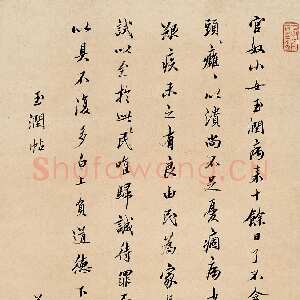 官奴小女玉潤病来十餘日了不令
頭癰以潰尚不足憂癇病少
艱疾未之有良由民為家
誠以至於此民唯歸誠待罪
以具不復多白上負道德下
玉潤帖
Shufawang.cn